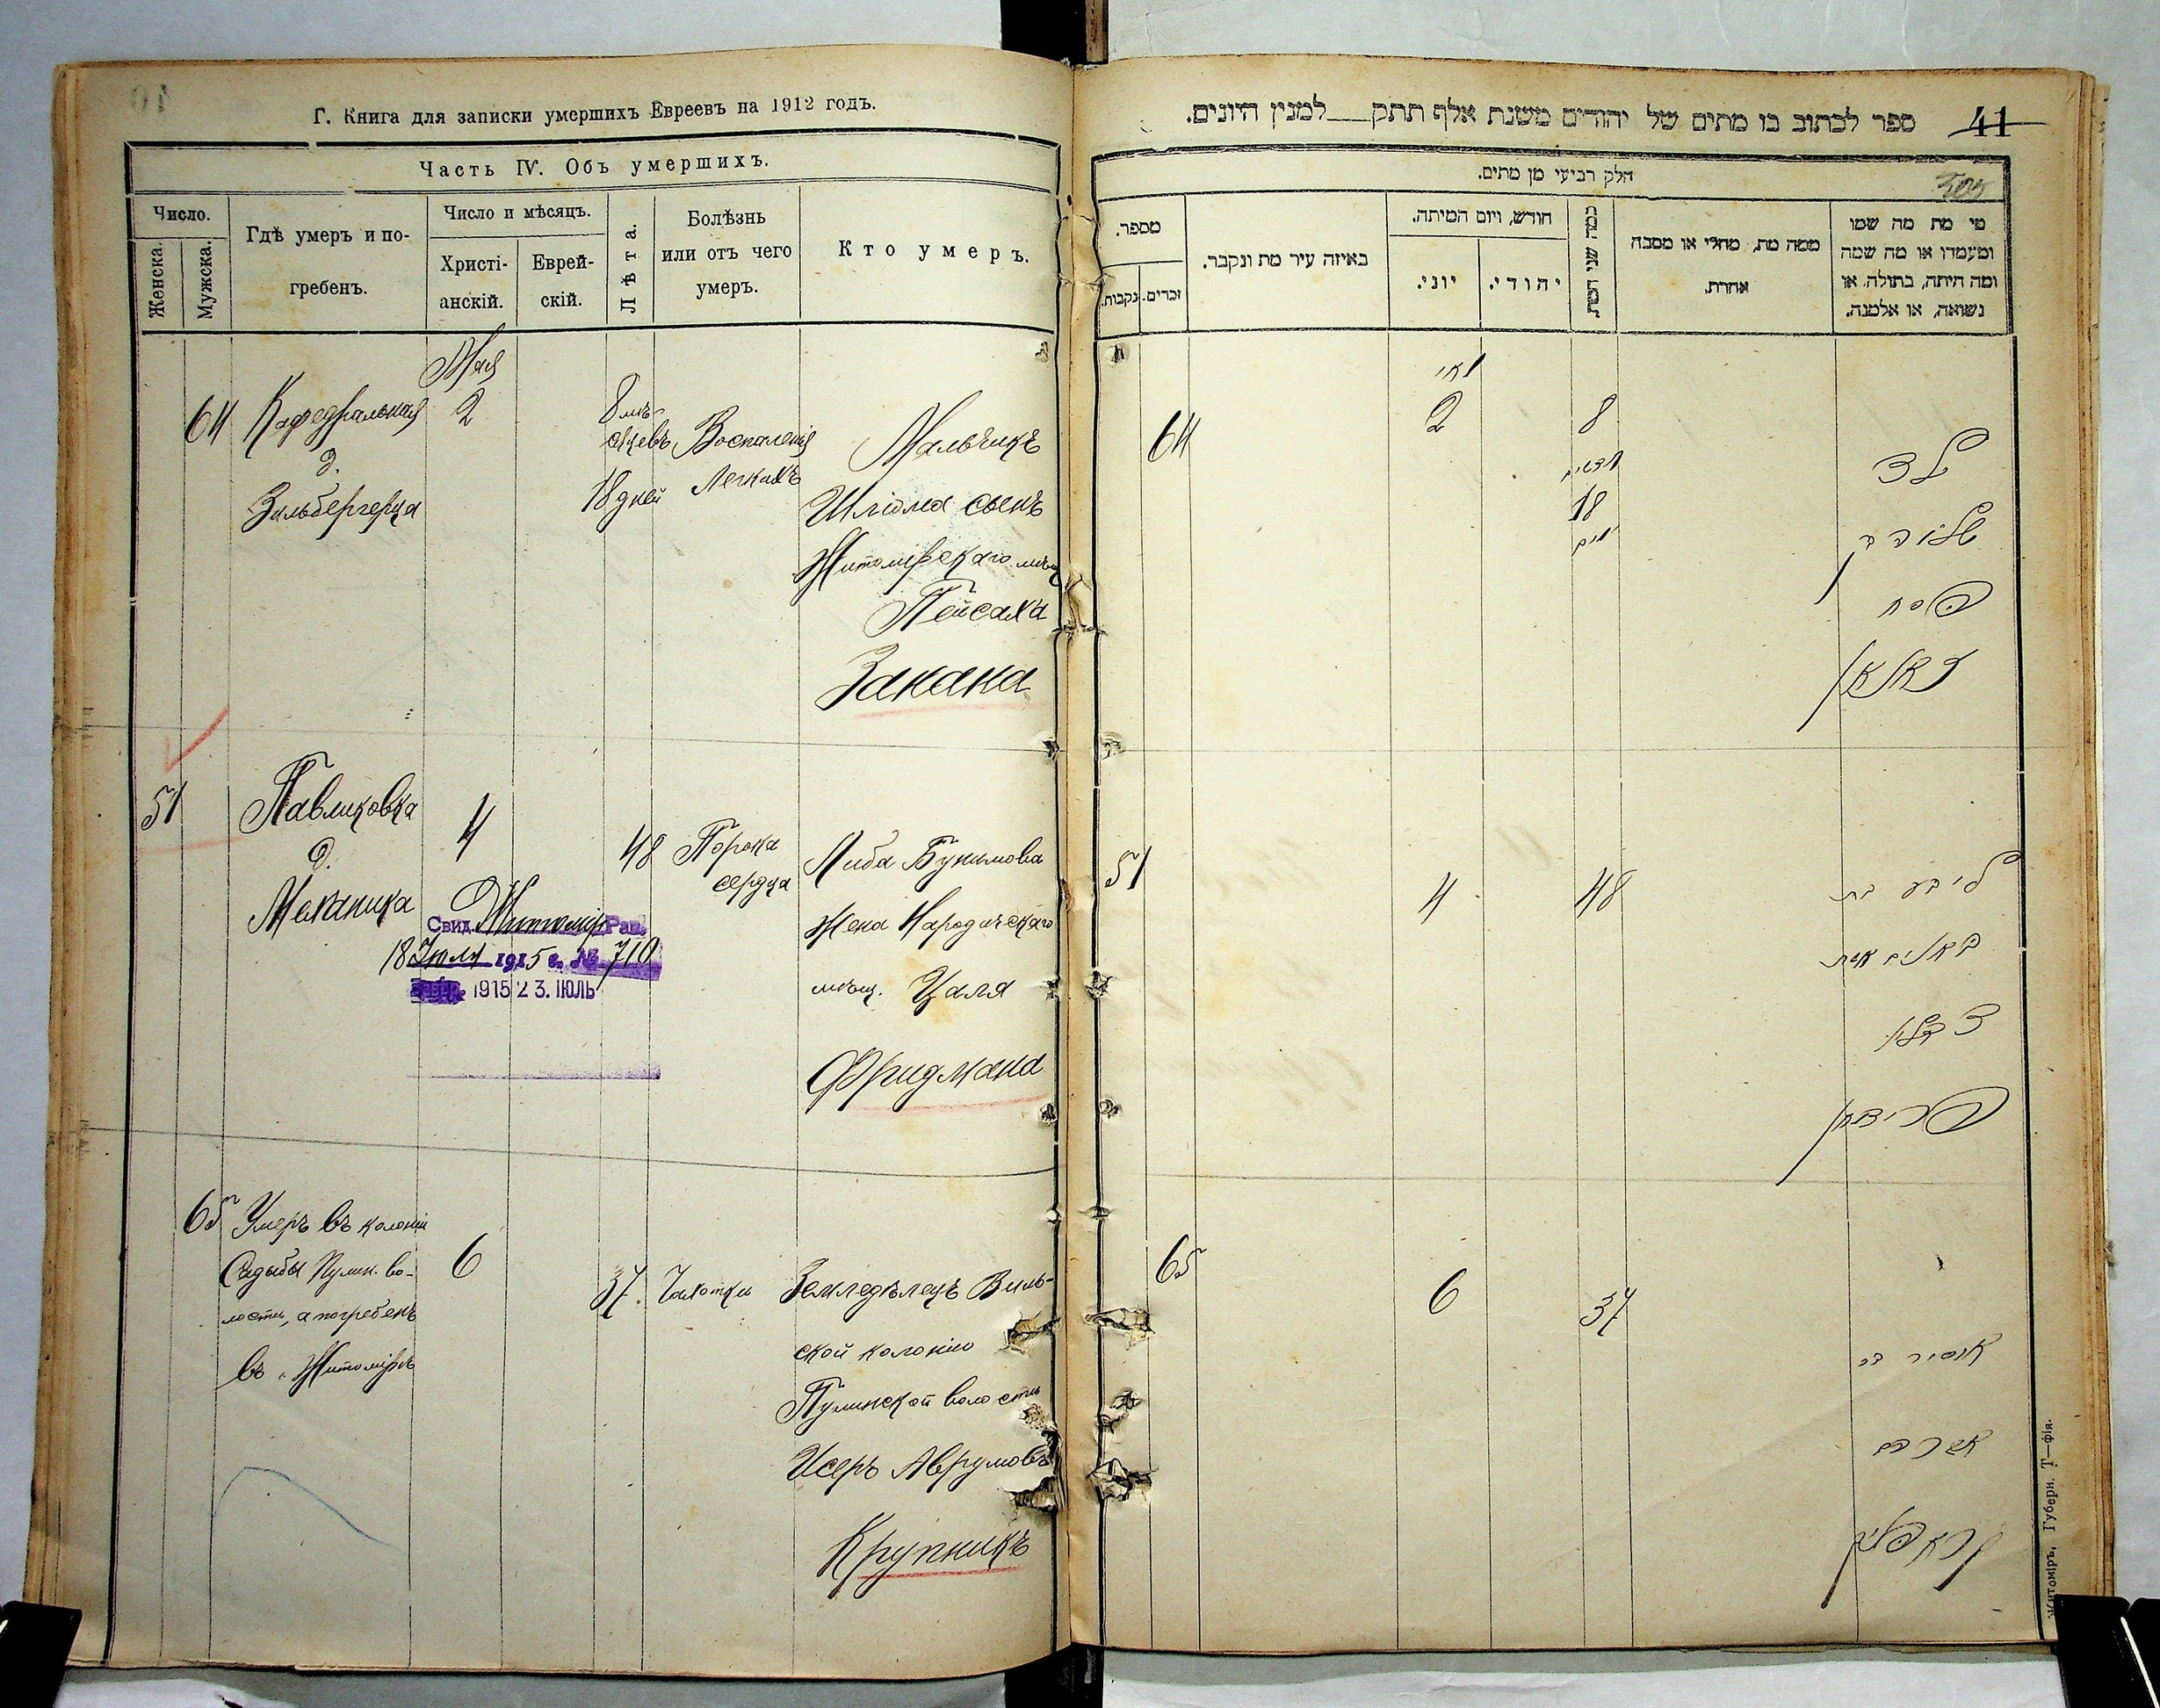 Г. Книга для записки умершихъ Евреевъ на 1912 годъ.
Часть IV. Объ умершихъ.
Число.
Женска.
Мужска.
Гдѣ умеръ и по-
гребенъ.
Число и мѣсяцъ.
Христі-
анскій.
Еврей-
скій.
Лѣта.
Болѣзнь
или отъ чего
умеръ.
Кто умеръ.
Мая
64
Кафедральная
д.
Зильбергерца
2
8 мѣ-
сяцевъ
18 дней
Воспаленія
Легкихъ
Мальчикъ
Шлiома сынъ
Житомірскаго мѣщ
Пейсаха
Закана
51
Павликовка
д.
Механика
4
48
Порока
сердца
Либа Бунимова
Жена Народическаго
мѣщ. Цаля
Фридмана
Свид. Житомір Рав.
18 Июля 1915 г. № 710
1915 23. ІЮЛЬ
65
Умеръ въ колоніи
Садыбы Пулин. во-
лости, а погребенъ
въ Житомірѣ
6
37.
Чахотки
Земледѣлецъ Виль-
ской колоніи
Пулинской волости
Исеръ Аврумовъ
Крупникъ
41
ספר לכתוב בו מתים של יהודים משנת אלף תתק למנין היונים.
חלק רביעי מן מתים.
מספר.
נקבות.
זכרים.
באיזה עיר מת ונקבר.
חודש, ויום המיתה.
יוני.
יהודי.
כמה שני המת
ממה מת, מחלי או מסבה
אחרת.
מי מת מה שמו
ומעמדו או מה שמה
ומה היתה, בתולה, או
נשואה, או אלמנה.
מאי
64
2
8
חדשים
18
ימים
ילד
שלומה ב
פסח
זאקאן
51
4
48
ליבע בת
בונים אשת
פרידמן
65
6
37
איסר ב
אברהם
קרופניק
Житоміръ, Губерн. Т—фія.